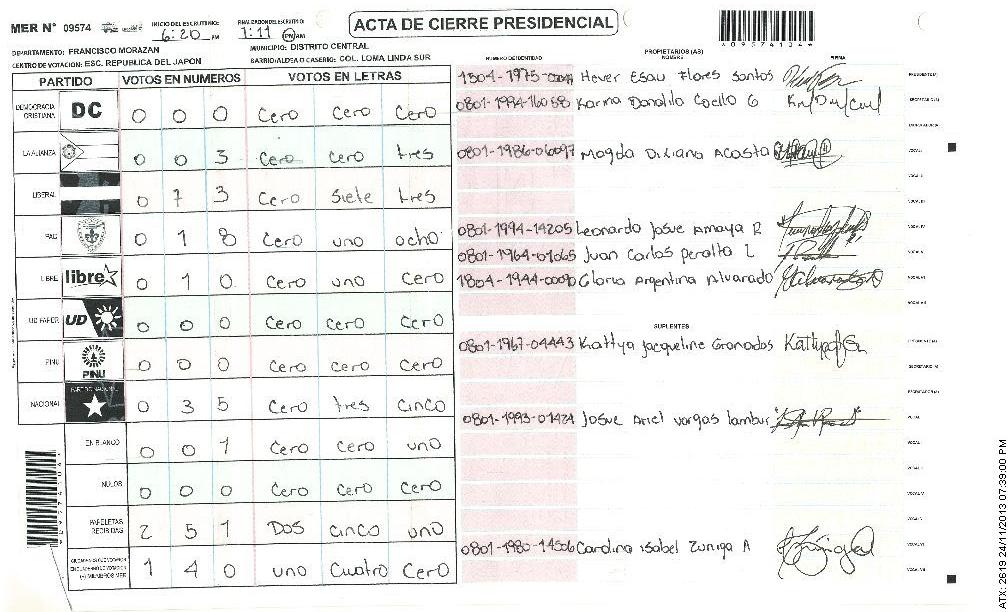 MER N° 09574
INICIO DEL ESCRUTINIO:
6:20 PM
FINALIZACION DEL ESCRUTINIO:
1:11 PM AM
ACTA DE CIERRE PRESIDENCIAL
*09574104*
DEPARTAMENTO: FRANCISCO MORAZAN
MUNICIPIO: DISTRITO CENTRAL
CENTRO DE VOTACION: ESC. REPUBLICA DEL JAPON
BARRIO/ALDEA O CASERIO: COL. LOMA LINDA SUR
PARTIDO VOTOS EN NUMEROS VOTOS EN LETRAS
DEMOCRACIA CRISTIANA DC 0 0 0 Cero Cero Cero
LA ALIANZA 0 0 3 Cero Cero tres
LIBERAL 0 7 3 Cero Siete tres
PAC 0 1 8 Cero uno ocho
LIBRE libre 0 1 0 Cero uno Cero
UD FAPER UD 0 0 0 Cero Cero Cero
PINU PINU 0 0 0 Cero Cero Cero
NACIONAL PARTIDO NACIONAL 0 3 5 Cero tres Cinco
EN BLANCO 0 0 1 Cero Cero uno
NULOS 0 0 0 Cero Cero Cero
PAPELETAS RECIBIDAS 2 5 1 Dos Cinco uno
(+) MIEMBROS MER 1 4 0 uno Cuatro Cero
NUMERO DE IDENTIDAD
PROPIETARIOS (AS)
NOMBRES
FIRMA
1501-1975-Hever Esau Flores Santos PRESIDENTE(A)
0801-1994-16058 Karina Danalila Coello G SECRETARIO(A)
ESCRUTADOR(A)
0801-1986-06097 Magda Diliana Acosta VOCAL I
VOCAL II
VOCAL III
0801-1994-14205 Leonardo Josve Amaya R VOCAL IV
0801-1964-01065 Juan Carlos Peralta L VOCAL V
1804-1944-00090 Gloria Argentina Alvarado VOCAL VI
VOCAL VII
SUPLENTES
0801-1967-04443 Kattya Jacqueline Granados PRESIDENTE(A)
SECRETARIO(A)
ESCRUTADOR(A)
0801-1993-01424 Josue Ariel Vargas lambur VOCAL
VOCAL I
VOCAL II
VOCAL IV
VOCAL V
0801-1980-14506 Carolina Isabel Zuniga A VOCAL VI
VOCAL VII
ATX: 2619 24/11/2013 07:39:00 PM